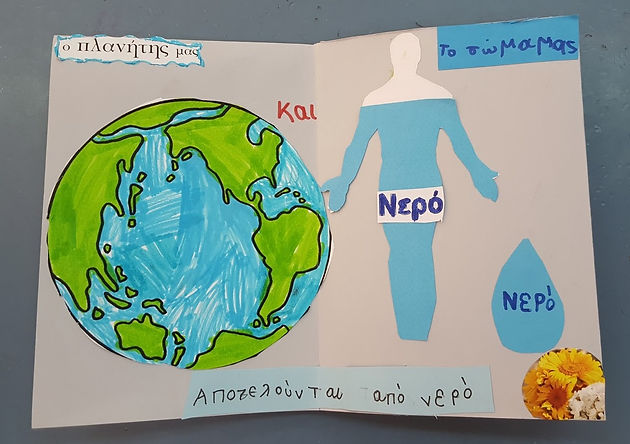 ο πλανήτης μας
Και
Το σώμα μας
Νερό
ΝΕΡΌ
Αποτελούνται από νερό